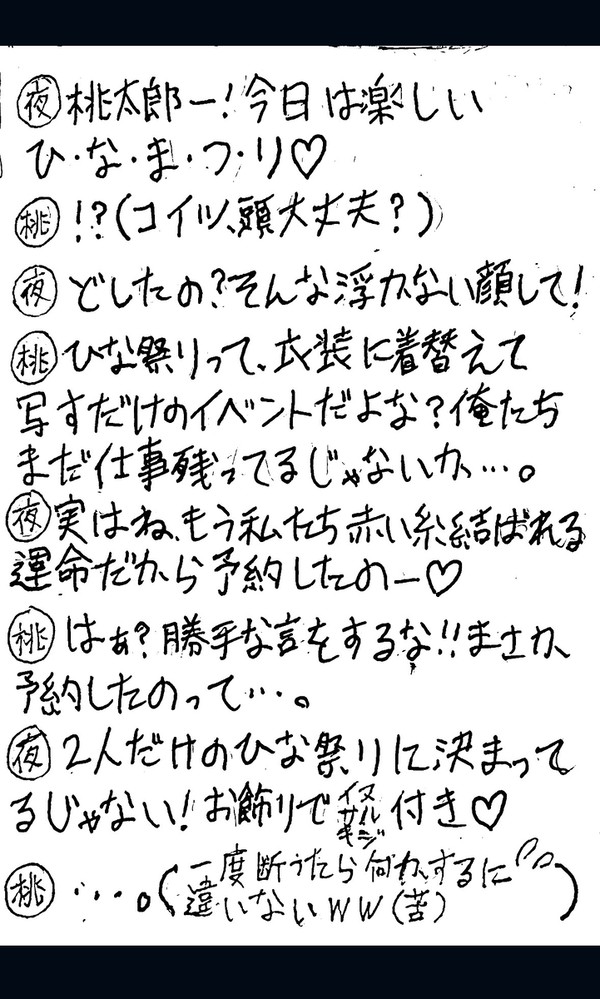 夜 桃太郎ー!今日は楽しい
ひ・な・ま・つ・り♡
桃 !?(コイツ、頭大丈夫?)
夜 どしたの?そんな浮かない顔して!
桃 ひな祭りって、衣装に着替えて
写すだけのイベントだよな?俺たち
まだ仕事残ってるじゃないか…。
夜 実はね、もう私たち赤い糸結ばれる
運命だから予約したのー♡
桃 はぁ?勝手な言をするな!!まさか、
予約したのって…。
夜 2人だけのひな祭りに決まって
るじゃない!お飾りでイヌサルキジ付き♡
桃 ・・・。(一度断うたら何かするに
違いないWW(苦))